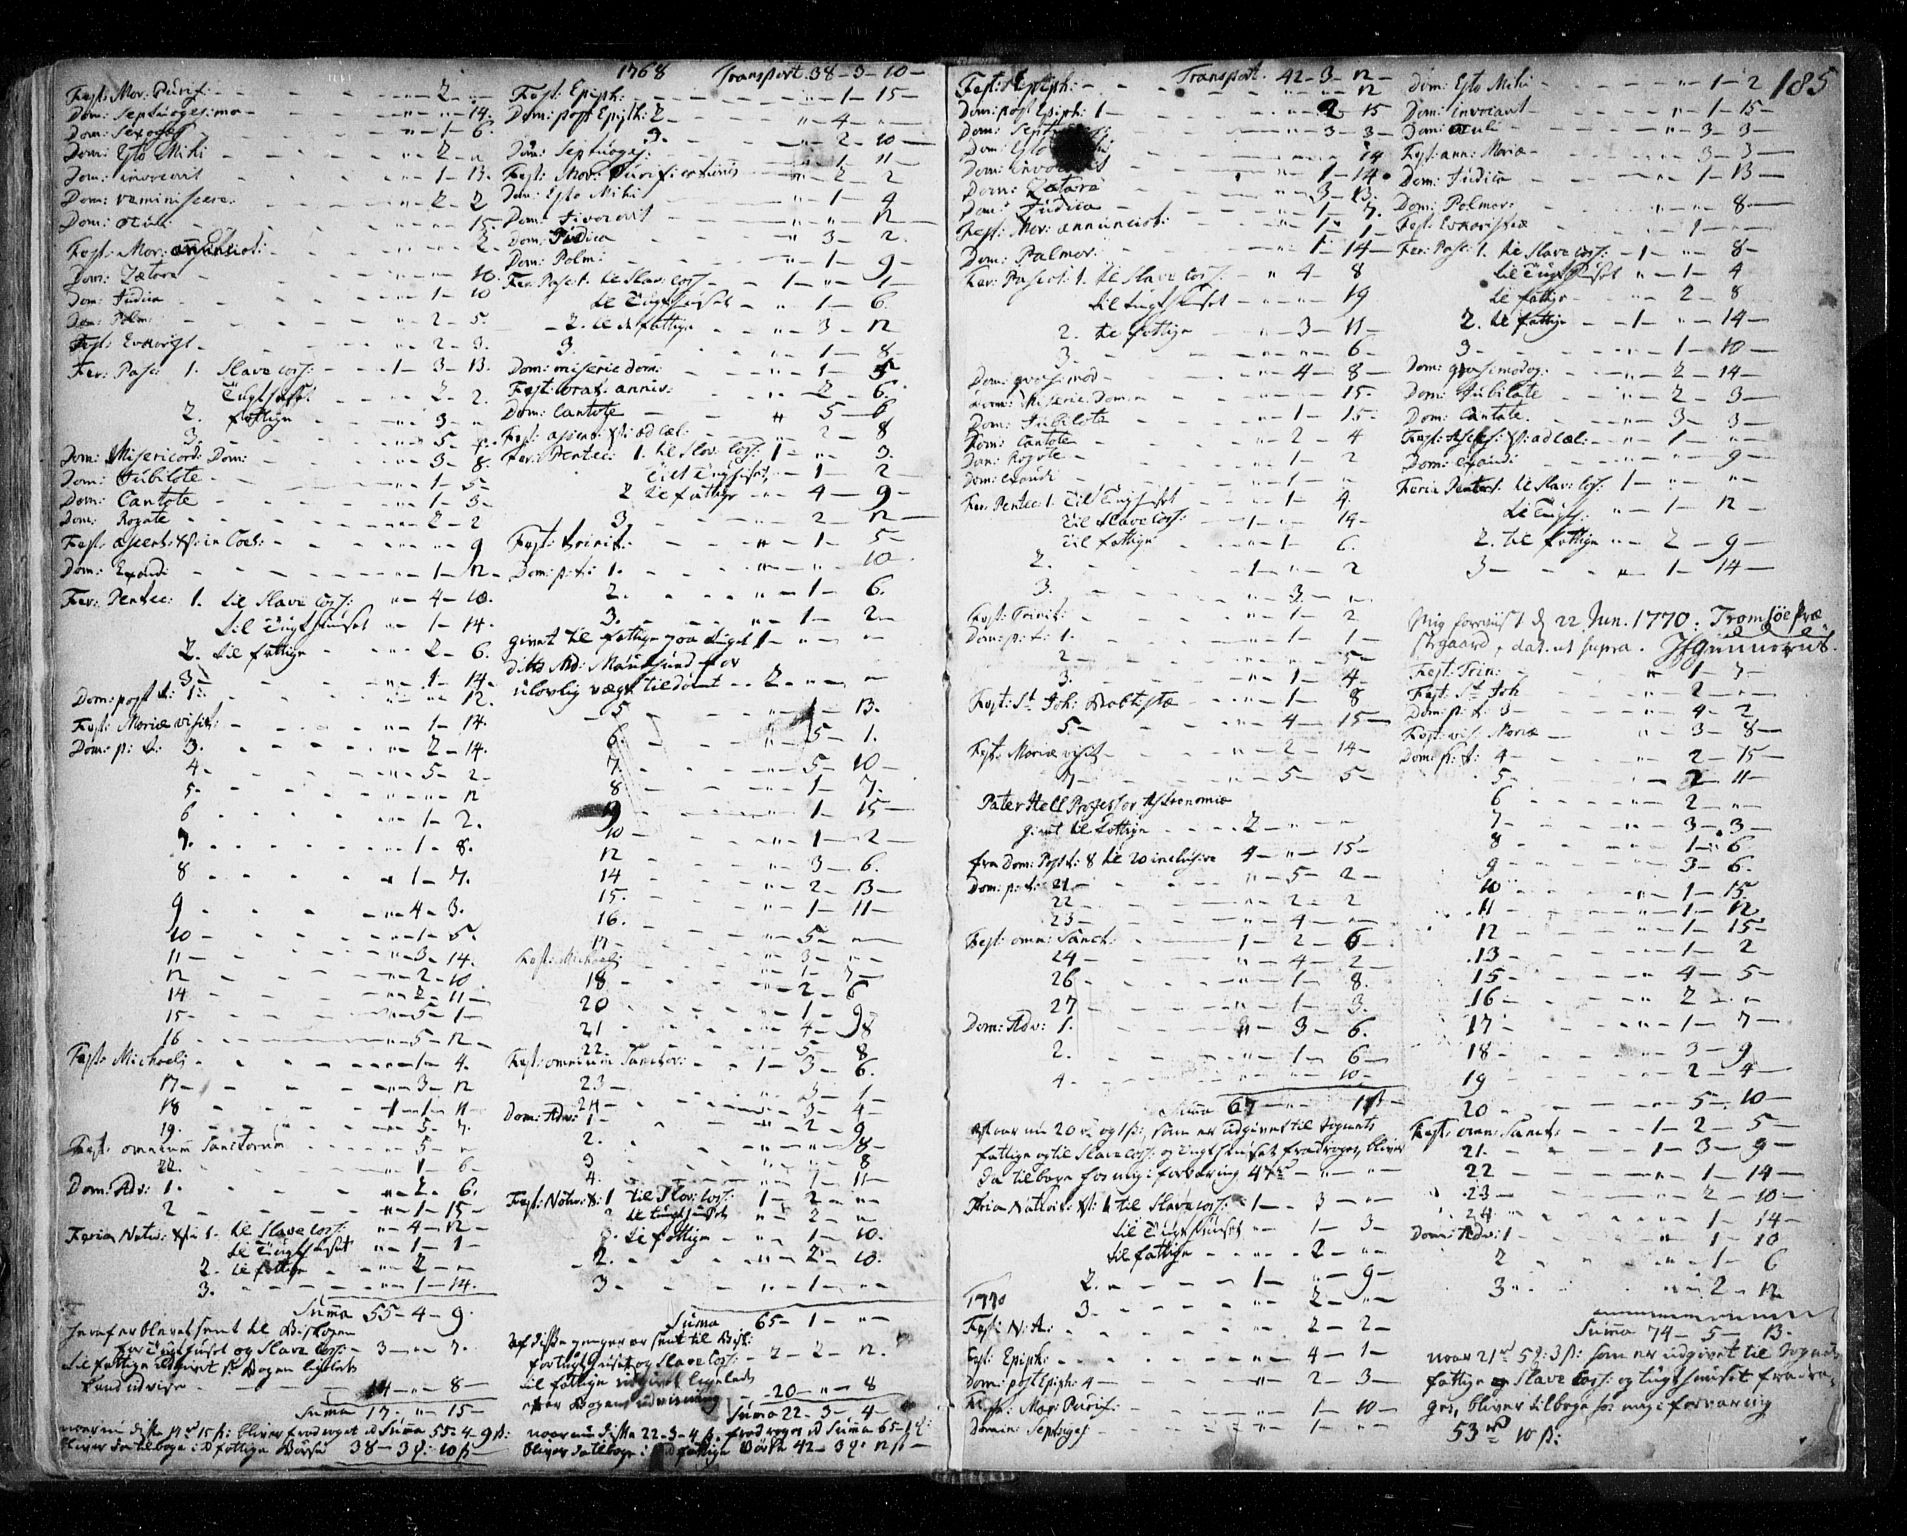 Fest: Mar: Purif: - - - „ - 2 - „
Dom: Septuagesima - - „ - „ - 14.
Dom: Sexages - - „ - 1 - 6.
Dom: Esto Mihi - - - „ - 2 - „
Dom: invocavit - - - „ - 1 - 13.
Dom: reminiscere. - - 2 - 2
Dom: oculi - - - „ - „ - 15.
Fest: Mar: annunciat: - - - „ - 2.
Dom: Lætare - - - „ - „ - 10.
Dom: Judica - - - „ - 1 - 10
Dom: Palm: - - - „ - 2 - 5.
Fest: Eukarist - - - „ - 2 - 3.
Fer: Pasc: 1. Slave Cass: - 1 - 3 - 13.
Tugthuset - 2 - 2.
2. fattige - „ - 3 - „
3. - - - „ - 5 -
Dom: Misericord: Dom: - „ - 3 - 8.
Dom: Jubilate - - - „ - 1 - 5.
Dom: Cantate - - - „ - 1 - 3.
Dom: Rogate - - - „ - 2 - 2
Fest: ascens: Xti: in Coel: - - „ - „ - 9
Dom: Exaudi - - - „ - 1 - 12 -
Fer: Pentec: 1. til Slave Cass: „ - 4 - 10.
til Tugthuset „ - 1 - 14.
2. til fattige - - „ - 2 - 6.
3. - - - „ - 1 - 14.
Dom: post t: 1: - - „ - „ - 12.
Fest: Mariæ visit: - - „ - 1 - 14.
Dom: p: t: 3. - - - „ - 2 - 14.
4. - - - „ - 5 - 2 -
5. - - - „ - „ - 12
6 - - - „ - 1 - 2.
7. - - - „ - 1 - 8.
8 - - - „ - 1 - 7.
9 - - - „ - 4 - 3.
10 - - - „ - 1 - 5.
11 - - - „ - 3 - 14.
12 - - - „ - 2 - 10.
14 - - - „ - 2 - 11 -
15 - - - „ - 5 - 1 -
16 - - - „ - 5 - 12 -
Fest: Michaelj - - - „ - 1 - 4.
17 - - - „ - 3 - 12
18 - - - 1 - 1 - 11
19. - - - „ - 5 - 7.
Fest: omnium Sanctorum - - „ - 5 - „
22. - - - „ - 1 - 6 -
Dom: Adv: 1. - - - „ - 2 - 6.
2 - - - „ - 1 - 15 -
Feria Nativ: Xti 1. til Slave Cass: - „ - 4 - 12 -
til Tugthuset „ - 1 - 1 -
2. til fattige - „ - 2 - „
3. - - - „ - 1 - 14.
Summa 55 - 4 - 9.
heraf er blevet sent til Biskopen
for Tugthuset og Slave Cass: - 3 - „ - 7.
til fattige udgivet bogen ligeleds
kand udvise - - - 14 - „ - 8 -
Summa 17. - „ - 15 -
naar nu diste 17rd 15 ß: bliver fradraget id Summa 55 - 4 - 9 ß:
bliver da tilbage i D fattige Børse 38 - 3 - 10 ß
1768 Transport 38 - 3 - 10 -
Fest: Epiph: - - - „ - 1 - 15 -
Dom: post Epiph: 2 - - „ - 4 - „
3. - - „ - 2 - 10 -
Dom: Septuages: - - „ - 1 - 11 -
Fest: Mar: Purificationis - - „ - 2 - 2
Dom: Esto Mihi - - „ - 1 - 4
Dom: Invocavit - - „ - „ - 12 -
Dom: Judica - - „ - 3 - 2.
Dom: Palm: - - „ - 1 - 9 -
Fer: Pasc: 1. til Slav: Cass: - - 1 - „ - 1 -
til Tugthuset - „ - 1 - 6.
- 2. til d fattige - „ - 3 - 12
3. - - „ - 1 - 8 -
Dom: miseric dom: - - „ - 1 - 5
Fest: orat: anniv: - - „ - 2 - 6.
Dom: Cantate - - „ - 5 - 6
Fest: ascens: Xti: ad cæl: - „ - 2 - 8
Fer: Pentec: 1. til Slav: Cass: 1 - „ - 3.
Til Tugthuset „ - 1 - 2 -
2 til fattige - „ - 4 - 9 -
3. - - „ - 2 - 12 -
Fest: trinit: - - „ - 1 - 5 -
Dom: p: t: 1. - - „ - „ - 10
2. - - „ - 1 - 6.
3. - - „ - 1 - 2 -
givet til fattige paa tinget 1 - „ - „
ditto Md: Maursund for
ulovlig vægt tildømt - 2 - „ - „
5 - - „ - 1 - 13.
6. - - „ - 5 - 1.
7. - - „ - 5 - 10 -
8 - - „ - 1 - 7.
9 - - „ - 1 - 15 -
10 - - „ - 1 - 2 -
12 - - „ - 3 - 6.
14 - - „ - 2 - 13 -
15. - - „ - 1 - 11 -
16. - - „ - 5 - „
17 - - „ - 3 - „
Fest: Michaelj - - „ - 1 - 7 -
18 - - „ - 2 - 6
20 - - „ - 1 - 9
21 - - „ - 4 - 8
22 - - „ - 5 - 8
Fest: omnium Sanctor: - - 1 - 3 - 6.
23 - - - 3 - 1 -
24 - - „ - 3 - 4 -
Dom: Adv: 1 - - „ - 2 - 9
2. - - „ - „ - 8 -
3 - - „ - „ - 8
4. - - „ - 1 - 11 -
Fest: Nativ: X: 1 til Slav: Cass: 1 - 2 - „
2 til tugthuset „ - 2 - „
til fattige - „ - 1 - 10.
2. - - „ - 2 - 10.
3 - - „ - 1 - „
Summa 65 - 1 - „
Af diste penger er sent til Bisk:
for tugthuset og Slave Cass: - 2 - 2 - 12.
til fattige udgivet ligeleds
efter Bogens udvisning - 20 - „ - 8
Suma 22 - 3 - 4 -
naar nu diste 22 - 3 - 4 ß fradrages id Suma 65 - 1
bliver da tilbage i d fattige Børse 42 - 3 - 12 ß -
Transport. 42 - 3 - 12 - 185
Fest: Epiph: - - „ - „ - 12
Dom: post Epiph: 1 - - „ - 2 - 15
Dom: Sept - - „ - 3 - 3 -
Dom: Esto - - „ - „ - 14
Dom: invocavit - - „ - 1 - 14
Dom: Lætare - - „ - 3 - 13.
Dom: Judica - - „ - 1 - 7.
Fest: Mar: annunciat: - - „ - 1 - 1 -
Dom: Palmar: - - „ - 1 - 14 -
Fer: Pascat: 1. til Slave Cass: - „ 4 - 8
til tugthuset - „ - „ - 19
2. til fattige - „ - 3 - 11 -
3 - - „ - „ - 6
Dom: qvasimod - - „ - 4 - 8 -
Dom: Miseric: Dom - - „ - „ - 15.
Dom: Jubilate - - „ - 1 - 15.
Dom: Cantate - - „ - 2 - 4
Dom: Rogate - - „ - 1 - 2
Dom: Exaudi - - „ - 1 - „
Fer: Pentec: 1. Til Tugthuset „ - 1 - 4
til Slave Cass: - 1 - „ - 14 -
til fattige - „ - 1 - 6.
2. - - 1 - „ - 2
3. - - „ - 3 - „
Fest: Trinit: - - „ - 1 - 2
Dom: p: t: 1. - - „ - 1 - 1 -
2 - - „ - „ - 5 -
3. - - „ - 1 - 4 -
Fest: St Joh: Babtistæ - - „ - 1 - 8
5. - - „ - 4 - 15 -
Fest: Mariæ visit - - „ - 2 - 14 -
7 - - „ - 5 - 5 -
Pater Hell Professor Astronomiæ
givet til fattige - - 2 - „ - „
fra Dom: Post t: 8 til 20 inclusive 4 - „ - 15 -
Dom: p: t: 21. - - „ - 5 - 2 -
22 - - „ - 2 - 2
23 - - „ - 4 - „
Fest: omn: Sanct: - - 1 - 2 - 6 -
24 - - „ - 4 - 2 -
26 - - „ - 1 - 8.
27 - - „ - 1 - 3.
Dom: Adv: 1. - - „ - 3 - 6.
2. - - „ - 1 - 6 -
4. - - „ - „ - 10 -
Summa 67 - „ - 1 ß -
naar nu 20 rd og 1 ß:, som er udgivet til Sognets
fattige og til Slave Cass: og Tugthuset fradrages, bliver
da tilbage for mig i forvaring 47rd - „ - „
Feria Nativit: Xti: 1 til Slave Cass: - 1 - 3 - „
til Tugthuset „ - 1 - 3 -
til fattige - - - 2 - „
2. - - 1 - „ - 9 -
1770 3. - - „ - 2 - „
Fest: N: A: - - „ - 2 - 2 -
Fest: Epiph: - - „ - 4 - 1 -
Dom: post Epiph: 4 - - „ - 2 - 3 -
Fest: Mar: Purif: - - „ - 1 - 10 -
Domin: Septuages - - „ - 1 - „
Dom: Esto Mihi - - „ - 1 - 2
Dom: invocavit - - „ - 1 - 15 -
Dom: oculi - - „ - 3 - 3 -
Fest: ann: Mariæ - - - 3 - 3 -
Dom: Judica - - „ - 1 - 13 -
Dom: Palmar: - - „ - „ - 8 -
Fest: Eukaristiæ - - 1 - „
Fer: Pasc: 1. til Slave Cass: - 1 - „ - 8 -
til Tugthuset „ - 1 - 4
til fattige - „ - 2 - 8
2. til fattige - - 1 - „ - 14 -
3 - - „ - 1 - 10
Dom: qvasimodog. - - „ - 2 - 14 -
Dom: Jubilate - - „ - 2 - 3 -
Dom: Cantate. - - „ - 3 - 3 -
Fest: Ascens: Xti: ad cæl: - - „ - 1 - „
Dom: Exaudi - - „ - „ - 9 -
Feria Pentec: 1. til Slav: Cass: 1 - „ - „
til Tugth: „ - 1 - 12
2. til fattige - „ - 2 - 9 -
3 - - „ - 1 - 14 -
Mig foreviist d 22 Jun. 1770. Tromsöe Præ-
stegaard, dat. ut supra. JEGunnerus.
Fest: Trin: - - „ - 1 - 7 -
Fest: St Joh - - „ - 2 - „
Dom: p: t: 3 - - „ - 4 - 2
Fest: vis: Mariæ - - „ - 3 - 8 -
Dom: p: t: 4 - - „ - 2 - 15 -
5 - - „ - 2 - 11 -
6 - - „ - 2 - „
7 - - „ - 3 - 3 -
8 - - „ - 1 - 6
9 - - „ - 3 - 6.
10 - - „ - 1 - 15
11 - - „ - 1 - 12.
12 - - „ - 1 - 15 -
13 - - „ - 1 - 2
15 - - „ - 4 - 5 -
16 - - „ - 2 - „
17 - - „ - 1 - 7 -
18 - - „ - 3 - 9
19 - - „ - 2 - 4 -
20 - - „ - 5 - 10 -
Fest: omn: Sanct: - - 1 - 2 - 5 -
21. - - 1 - 3 - 9 -
22 - - „ - 1 - 14 -
23 - - „ - 2 - 10 -
24 - - „ - 1 - 14 -
Dom: Adv: 1 - - „ - 1 - 10
2 - - „ - 1 - 6
3 - - „ - 2 - 12
Summa 74 - 5 - 13.
naar 21rd 5 : 3 ß: som er udgivet til Sognets
fattige og Slave Cass: og tugthuset fradra-
ges, bliver tilbage hos mig i forvaring
53rd 10 ß: